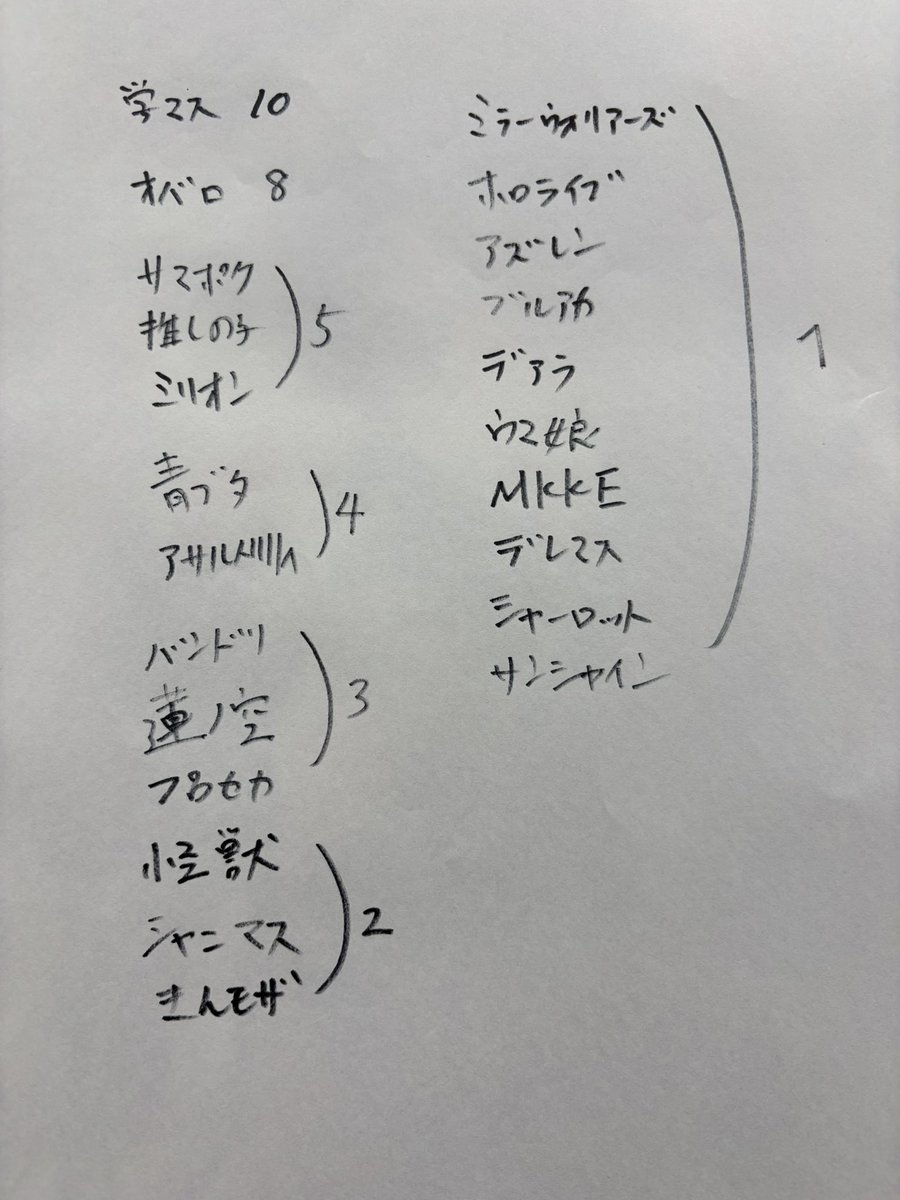 学マス 10
オバロ 8
サマポケ
推しの子
ミリオン
5
青ブタ
アサルトリリィ
4
バンドリ
蓮ノ空
プロセカ
3
怪獣
シャニマス
きんモザ
2
ミラーウォリアーズ
ホロライブ
アズレン
ブルアカ
デアラ
ウマ娘
NIKKE
デレマス
シャーロット
サンシャイン
1